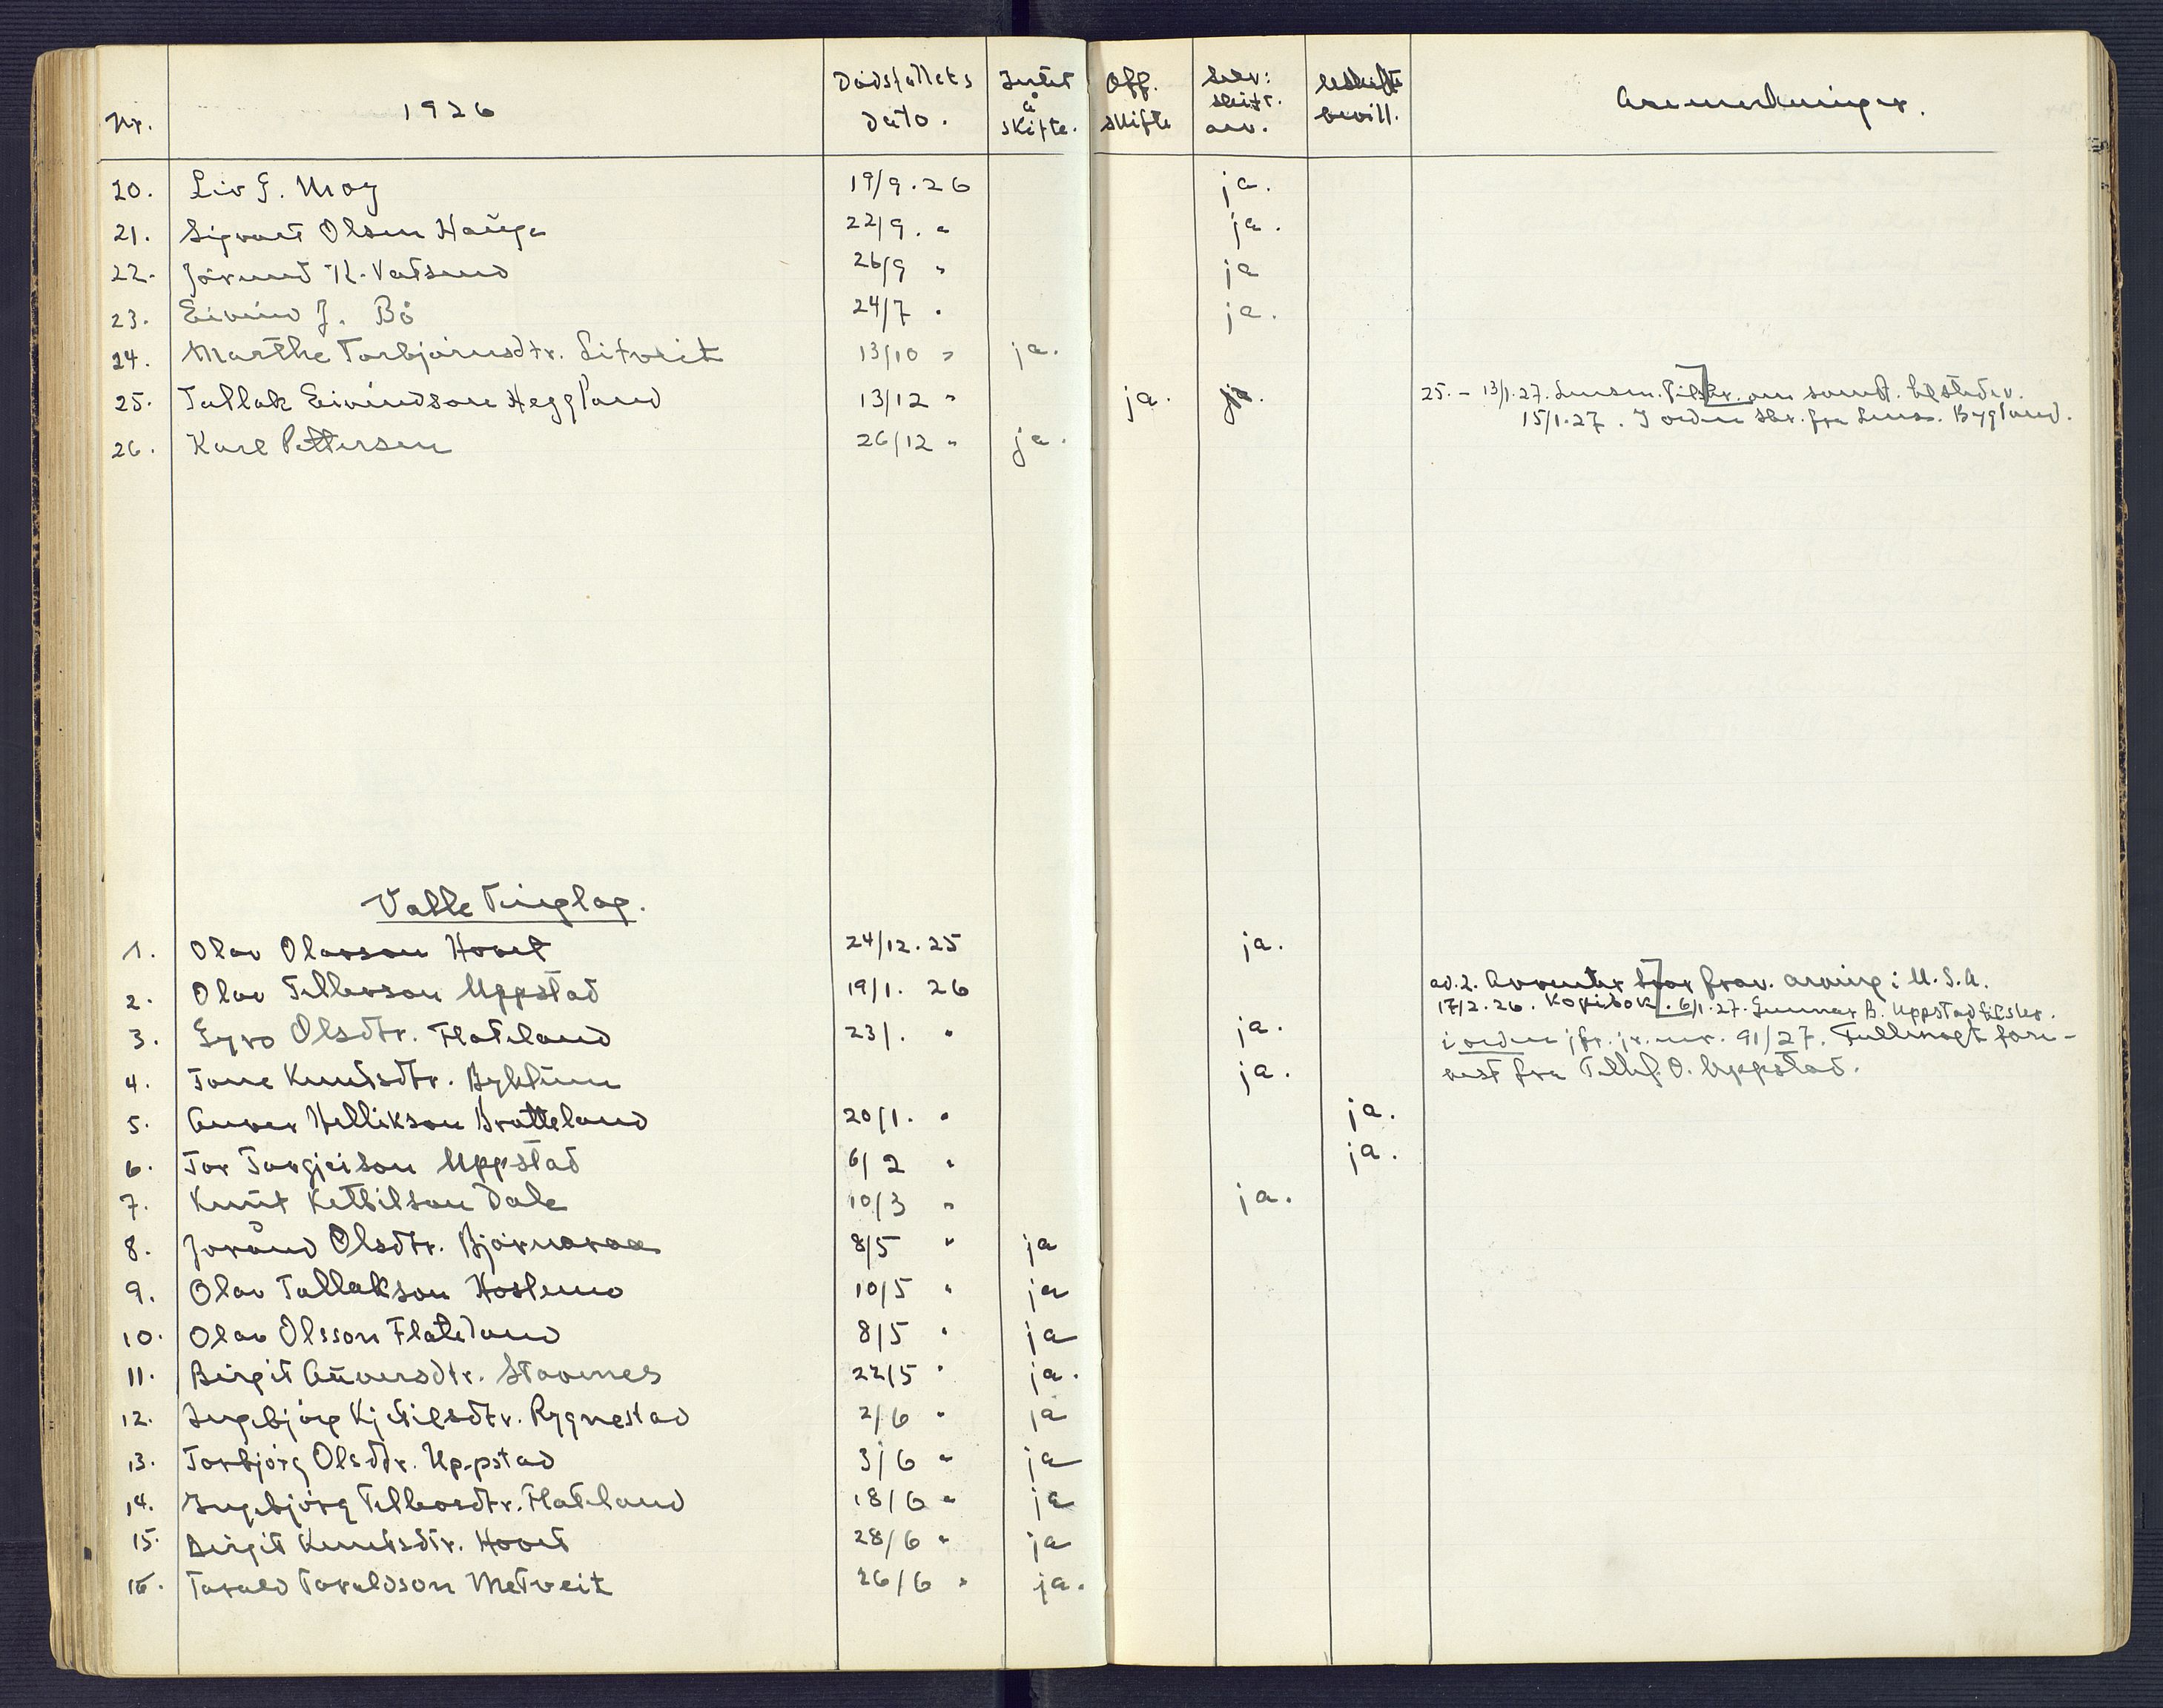 Nr. 1926 Dödsfallets dato. Intet å skifte. Off. skifte Selv: skift. arv. Uskifte bevill. Anmerkninger.
20. Liv G. Moy 19/9.26 ja.
21. Sigvart Olsen Hauge 22/9. " ja.
22. Jörund K. Vatsend 26/9 " ja
23. Eivind J. Bö 24/7 " ja.
24. Marthe Torbjörnsdtr. Litveit 13/10 " ja.
25. Tallak Eivindson Heggland 13/12 " ja. ja. 25. - 13/1.27. Lensm. tilskr. om samt.
15/1.27. I orden skr. fra Lensm. Bygland.
26. Karl Pettersen 26/12 " ja.
Valle Tinglag.
1. Olav Olavson Hovet 24/12.25 ja.
2. Olav Tellevson Uppstad 19/1. 26 ad. 2. frav. arving i U.S.A.
17/2.26. Kopibok. 6/1.27. Gunnar B. Uppstad tilskr.
3. Gyro Olsdtr. Flateland 23/. " ja. i orden jfr. jr. nr. 91/27. Fullmagt fore-
4. Tone Knutsdtr. Byklum ja. vist fra Tellef O. Uppstad.
5. Anver Hellikson Bratteland 20/1. " ja.
6. Tor Torgjeison Uppstad 6/2 " ja.
7. Knut Ketbilson Dale 10/3 " ja.
8. Joránd Olsdtr. Björnaraa 8/5 " ja
9. Olav Tallakson Hoslemo 10/5 " ja
10. Olav Olsson Flateland 8/5 " ja
11. Birgit Anversdtr. Stavenes 22/5 " ja.
12. Ingebjörg Kjetilsdtr. Rygnestad 2/6 " ja
13. Torbjörg Olsdtr. Uppstad 3/6 " ja
14. Ingebjörg Tellevsdtr. Flateland 18/6 " ja
15. Birgit Knutsdtr. Hovet 28/6 " ja
16. Tarald Taraldson Metveit 26/6 " ja.